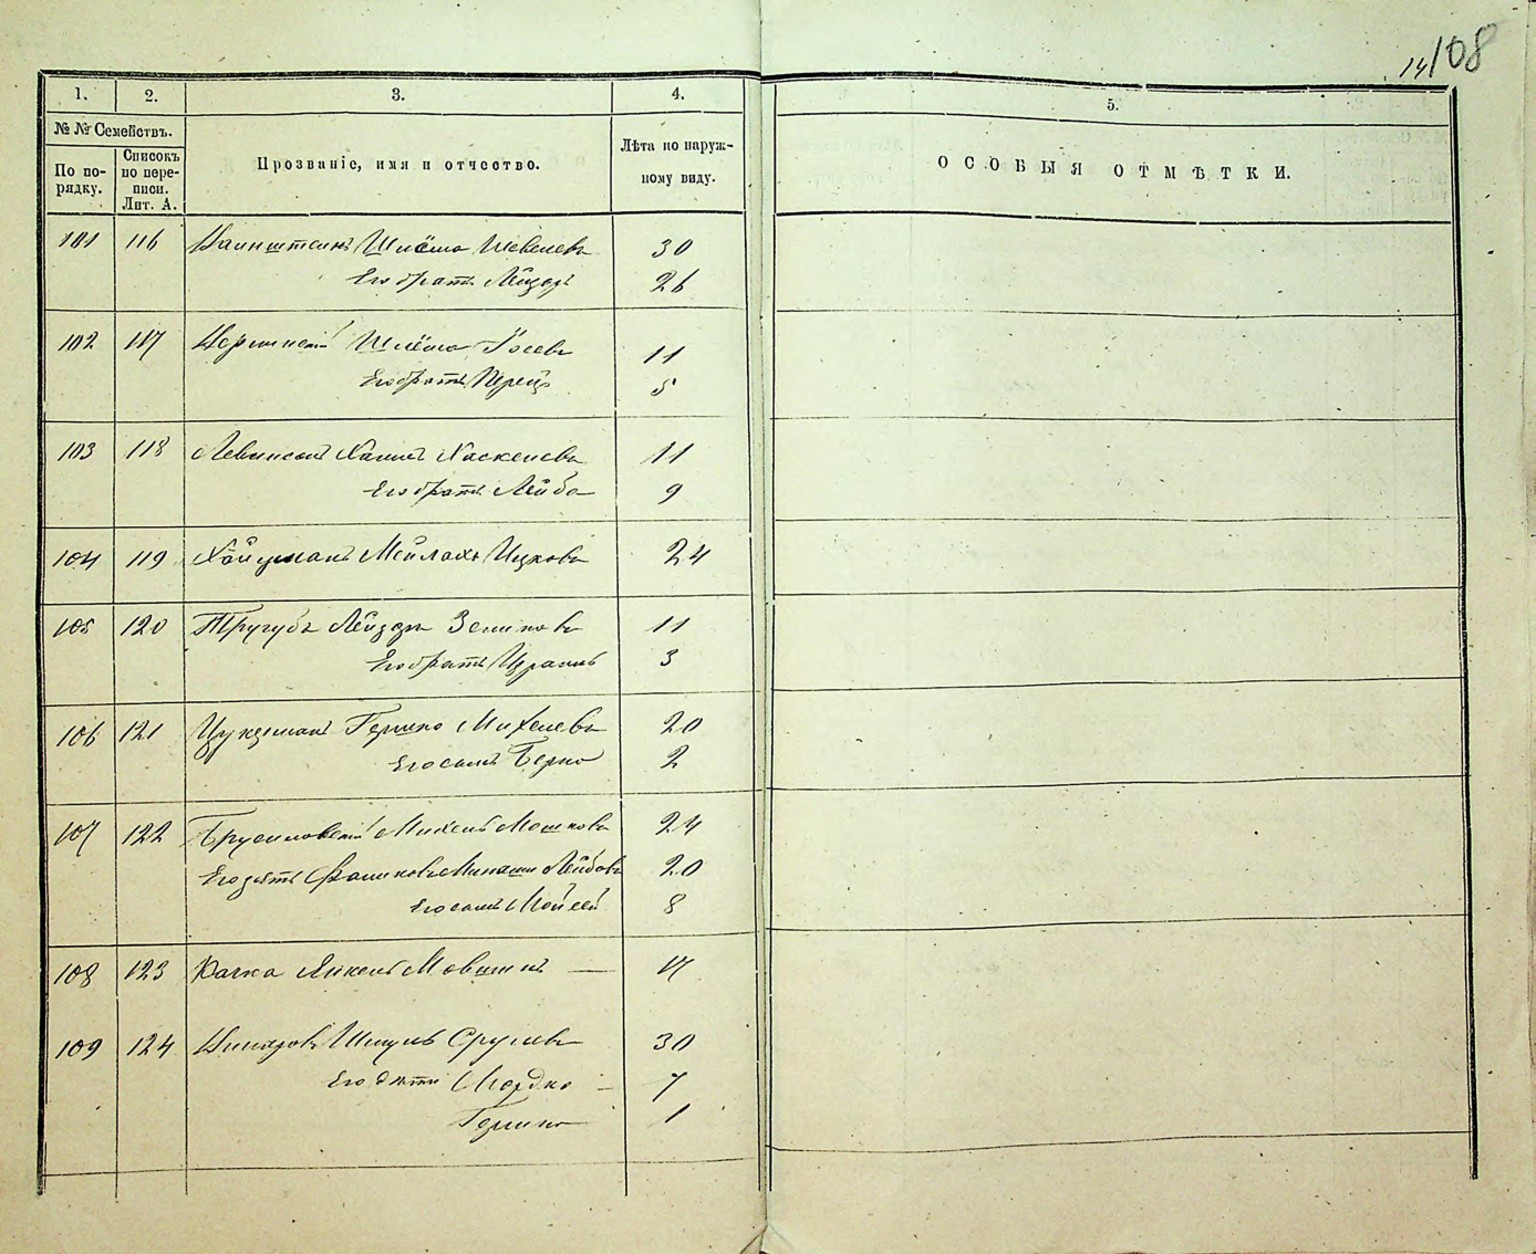 14/108
1. 2. 3. 4. 5.
№ № Семействъ.
По порядку. Списокъ по переписи. Лит. А. Прозваніе, имя и отчество. Лѣта по наружному виду. ОСОБЫЯ ОТМѢТКИ.
101 116 Ваинштеинъ Шлёма Шевелевъ 30
Его братъ Лейзеръ 26
102 117 Шлёма Іосевъ 11
Его братъ Перецъ 5
103 118 Левинсонъ Хаимъ Хаскелевъ 11
Его братъ Лейба 9
104 119 Мейлахъ Ицковъ 24
105 120 Тругубъ Лейзеръ Зеликовъ 11
Его братъ Израиль 3
106 121 Цукерманъ Гершко Михелевъ 20
Его сынъ Берко 2
107 122 Брусиловскій Михель Мошковъ 24
Его зять Фаликовъ Лейбовъ 20
Его сынъ Мойсей 8
108 123 Качка Янкель Мовшинъ — 17
109 124 Шмуль Срулевъ 30
Его дѣти Мордко — 7
Гершко 1